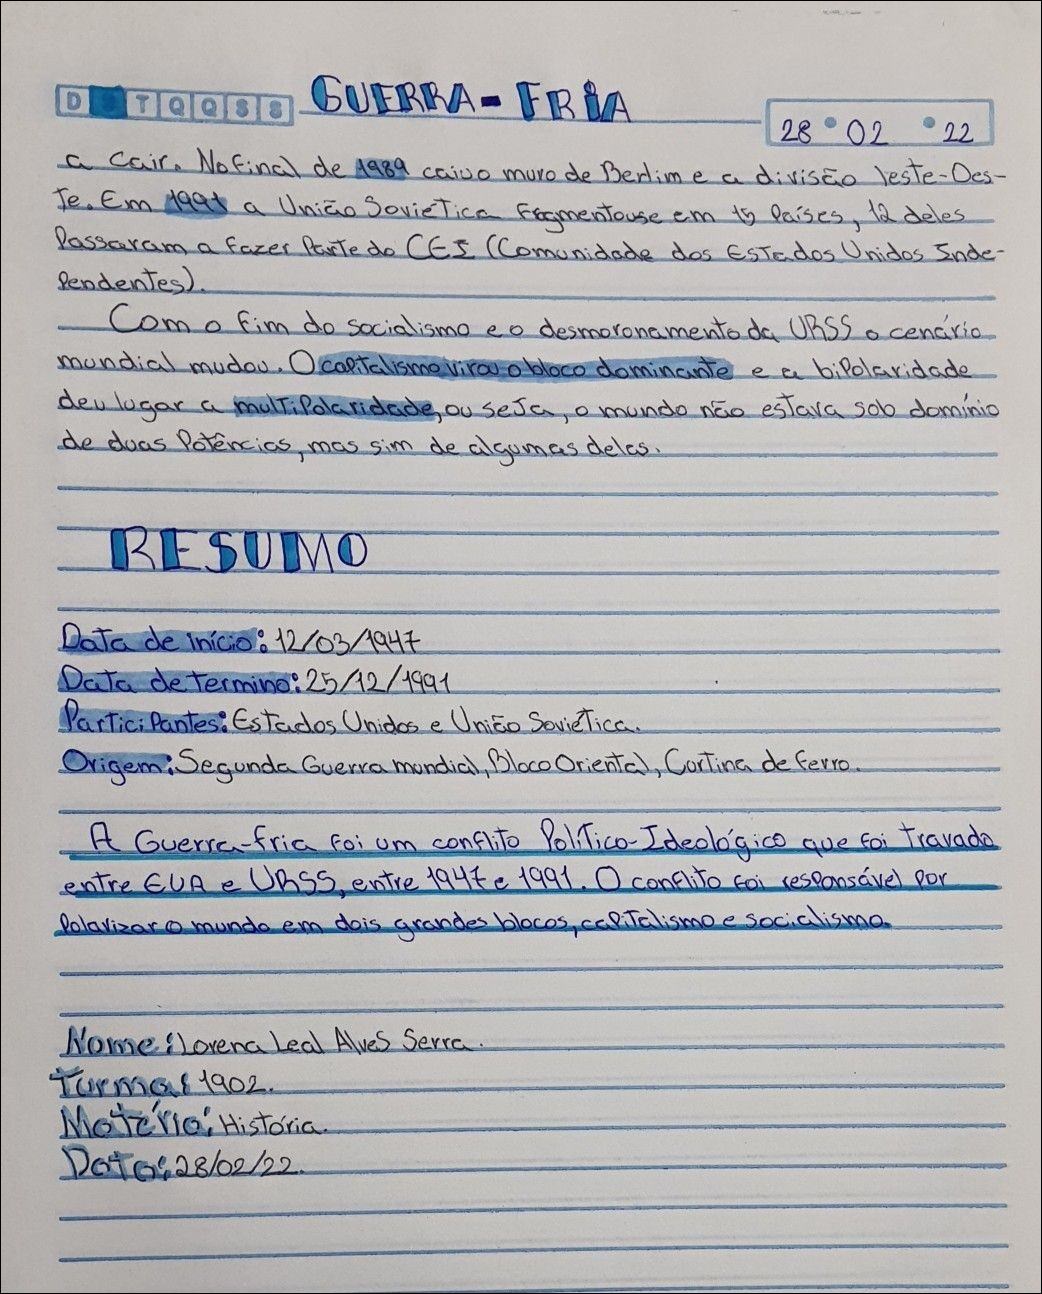 D S T Q Q S S GUERRA-FRIA
28 • 02 • 22
a cair. No final de 1989 caiu o muro de Berlim e a divisão leste-Oes-
te. Em 1991 a União Soviética fragmentouse em 15 países, 12 deles
passaram a fazer parte do CEI (Comunidade dos Estados Unidos Inde-
pendentes).
Com o fim do socialismo e o desmoronamento da URSS o cenário
mundial mudou. O capitalismo virou o bloco dominante e a bipolaridade
deu lugar a multipolaridade, ou seja, o mundo não estava sob domínio
de duas potências, mas sim de algumas delas.
RESUMO
Data de início: 12/03/1947
Data de termino: 25/12/1991
Participantes: Estados Unidos e União Soviética.
Origem: Segunda Guerra mundial, Bloco Oriental, Cortina de ferro.
A Guerra-fria foi um conflito Político-Ideológico que foi travado
entre EUA e URSS, entre 1947 e 1991. O conflito foi responsável por
polarizar o mundo em dois grandes blocos, capitalismo e socialismo.
Nome: Lorena Leal Alves Serra.
Turma: 1902.
Matéria: História.
Data: 28/02/22.